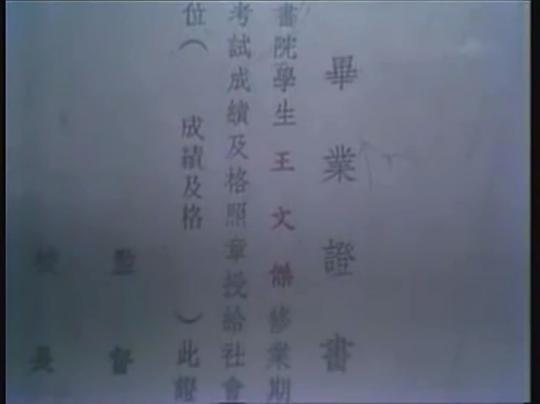 畢業證書
書院學生王文傑修業期
考試成績及格照章授給社會
位（成績及格）此證
監督
校長